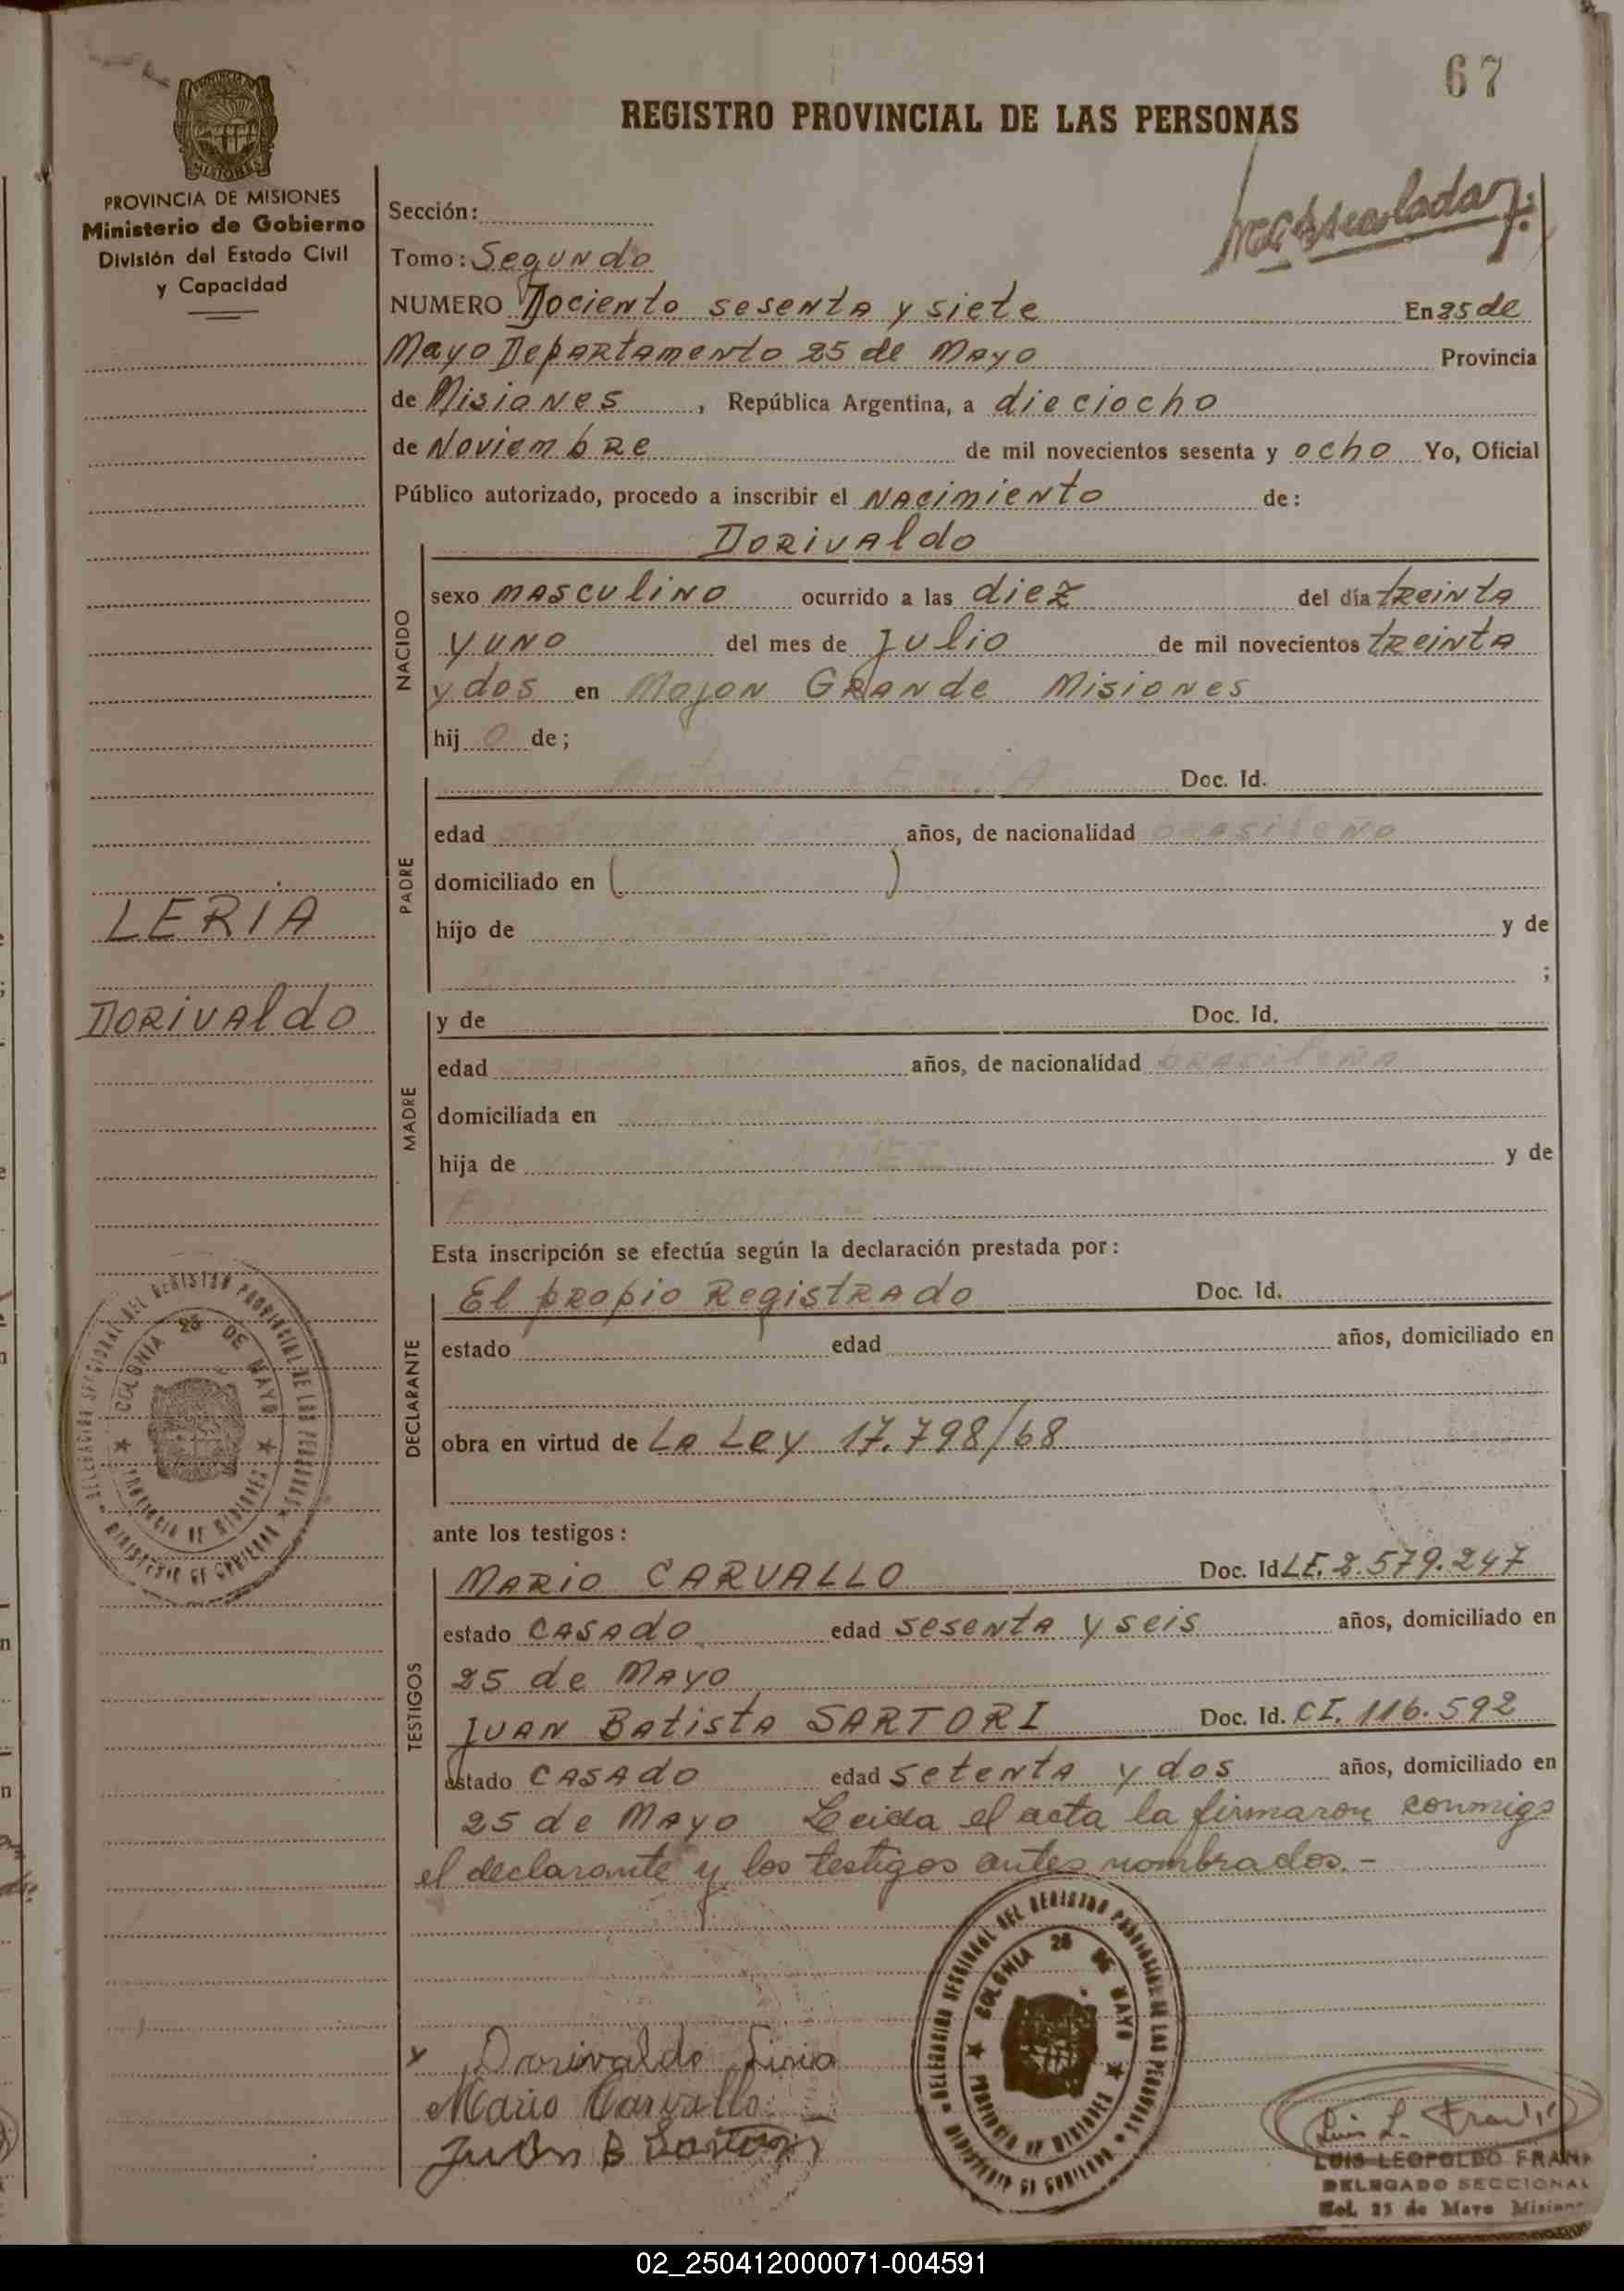 67
REGISTRO PROVINCIAL DE LAS PERSONAS
PROVINCIA DE MISIONES
Ministerio de Gobierno
División del Estado Civil
y Capacidad
Sección:
Tomo: Segundo
NUMERO Dociento sesenta y siete En 25 de
Mayo Departamento 25 de Mayo Provincia
de Misiones, República Argentina, a dieciocho
de Noviembre de mil novecientos sesenta y ocho Yo, Oficial
Público autorizado, procedo a inscribir el Nacimiento de:
Dorivaldo
NACIDO
sexo masculino ocurrido a las diez del día treinta
y uno del mes de Julio de mil novecientos treinta
y dos en Mojon Grande Misiones
hij o de;
PADRE
Doc. Id.
edad años, de nacionalidad brasileño
domiciliado en ( )
hijo de y de
;
LERIA
Dorivaldo
MADRE
y de Doc. Id.
edad años, de nacionalidad brasileña
domiciliada en
hija de y de
Esta inscripción se efectúa según la declaración prestada por:
DECLARANTE
El propio Registrado Doc. Id.
estado edad años, domiciliado en
obra en virtud de La Ley 17.798/68
ante los testigos:
TESTIGOS
Mario CARVALLO Doc. Id LE. 2.579.247
estado casado edad sesenta y seis años, domiciliado en
25 de Mayo
Juan Batista SARTORI Doc. Id. CI. 116.592
estado casado edad setenta y dos años, domiciliado en
25 de Mayo Leida el acta la firmaron conmigo
el declarante y los testigos antes nombrados.-
DELEGACION SECCIONAL DEL REGISTRO PROVINCIAL DE LAS PERSONAS
COLONIA 25 DE MAYO
PROVINCIA DE MISIONES
MINISTERIO DE GOBIERNO
x Dorivaldo Liria
Mario Carvallo
Juan B Sartori
LUIS LEOPOLDO FRAN
DELEGADO SECCIONAL
Col. 25 de Mayo Misiones
02_250412000071-004591